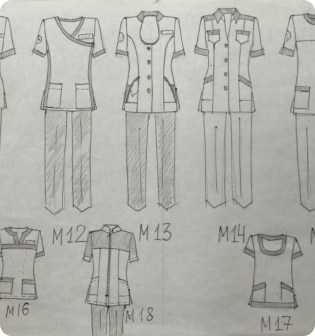 M12
M13
M14
M
M16
M18
M17